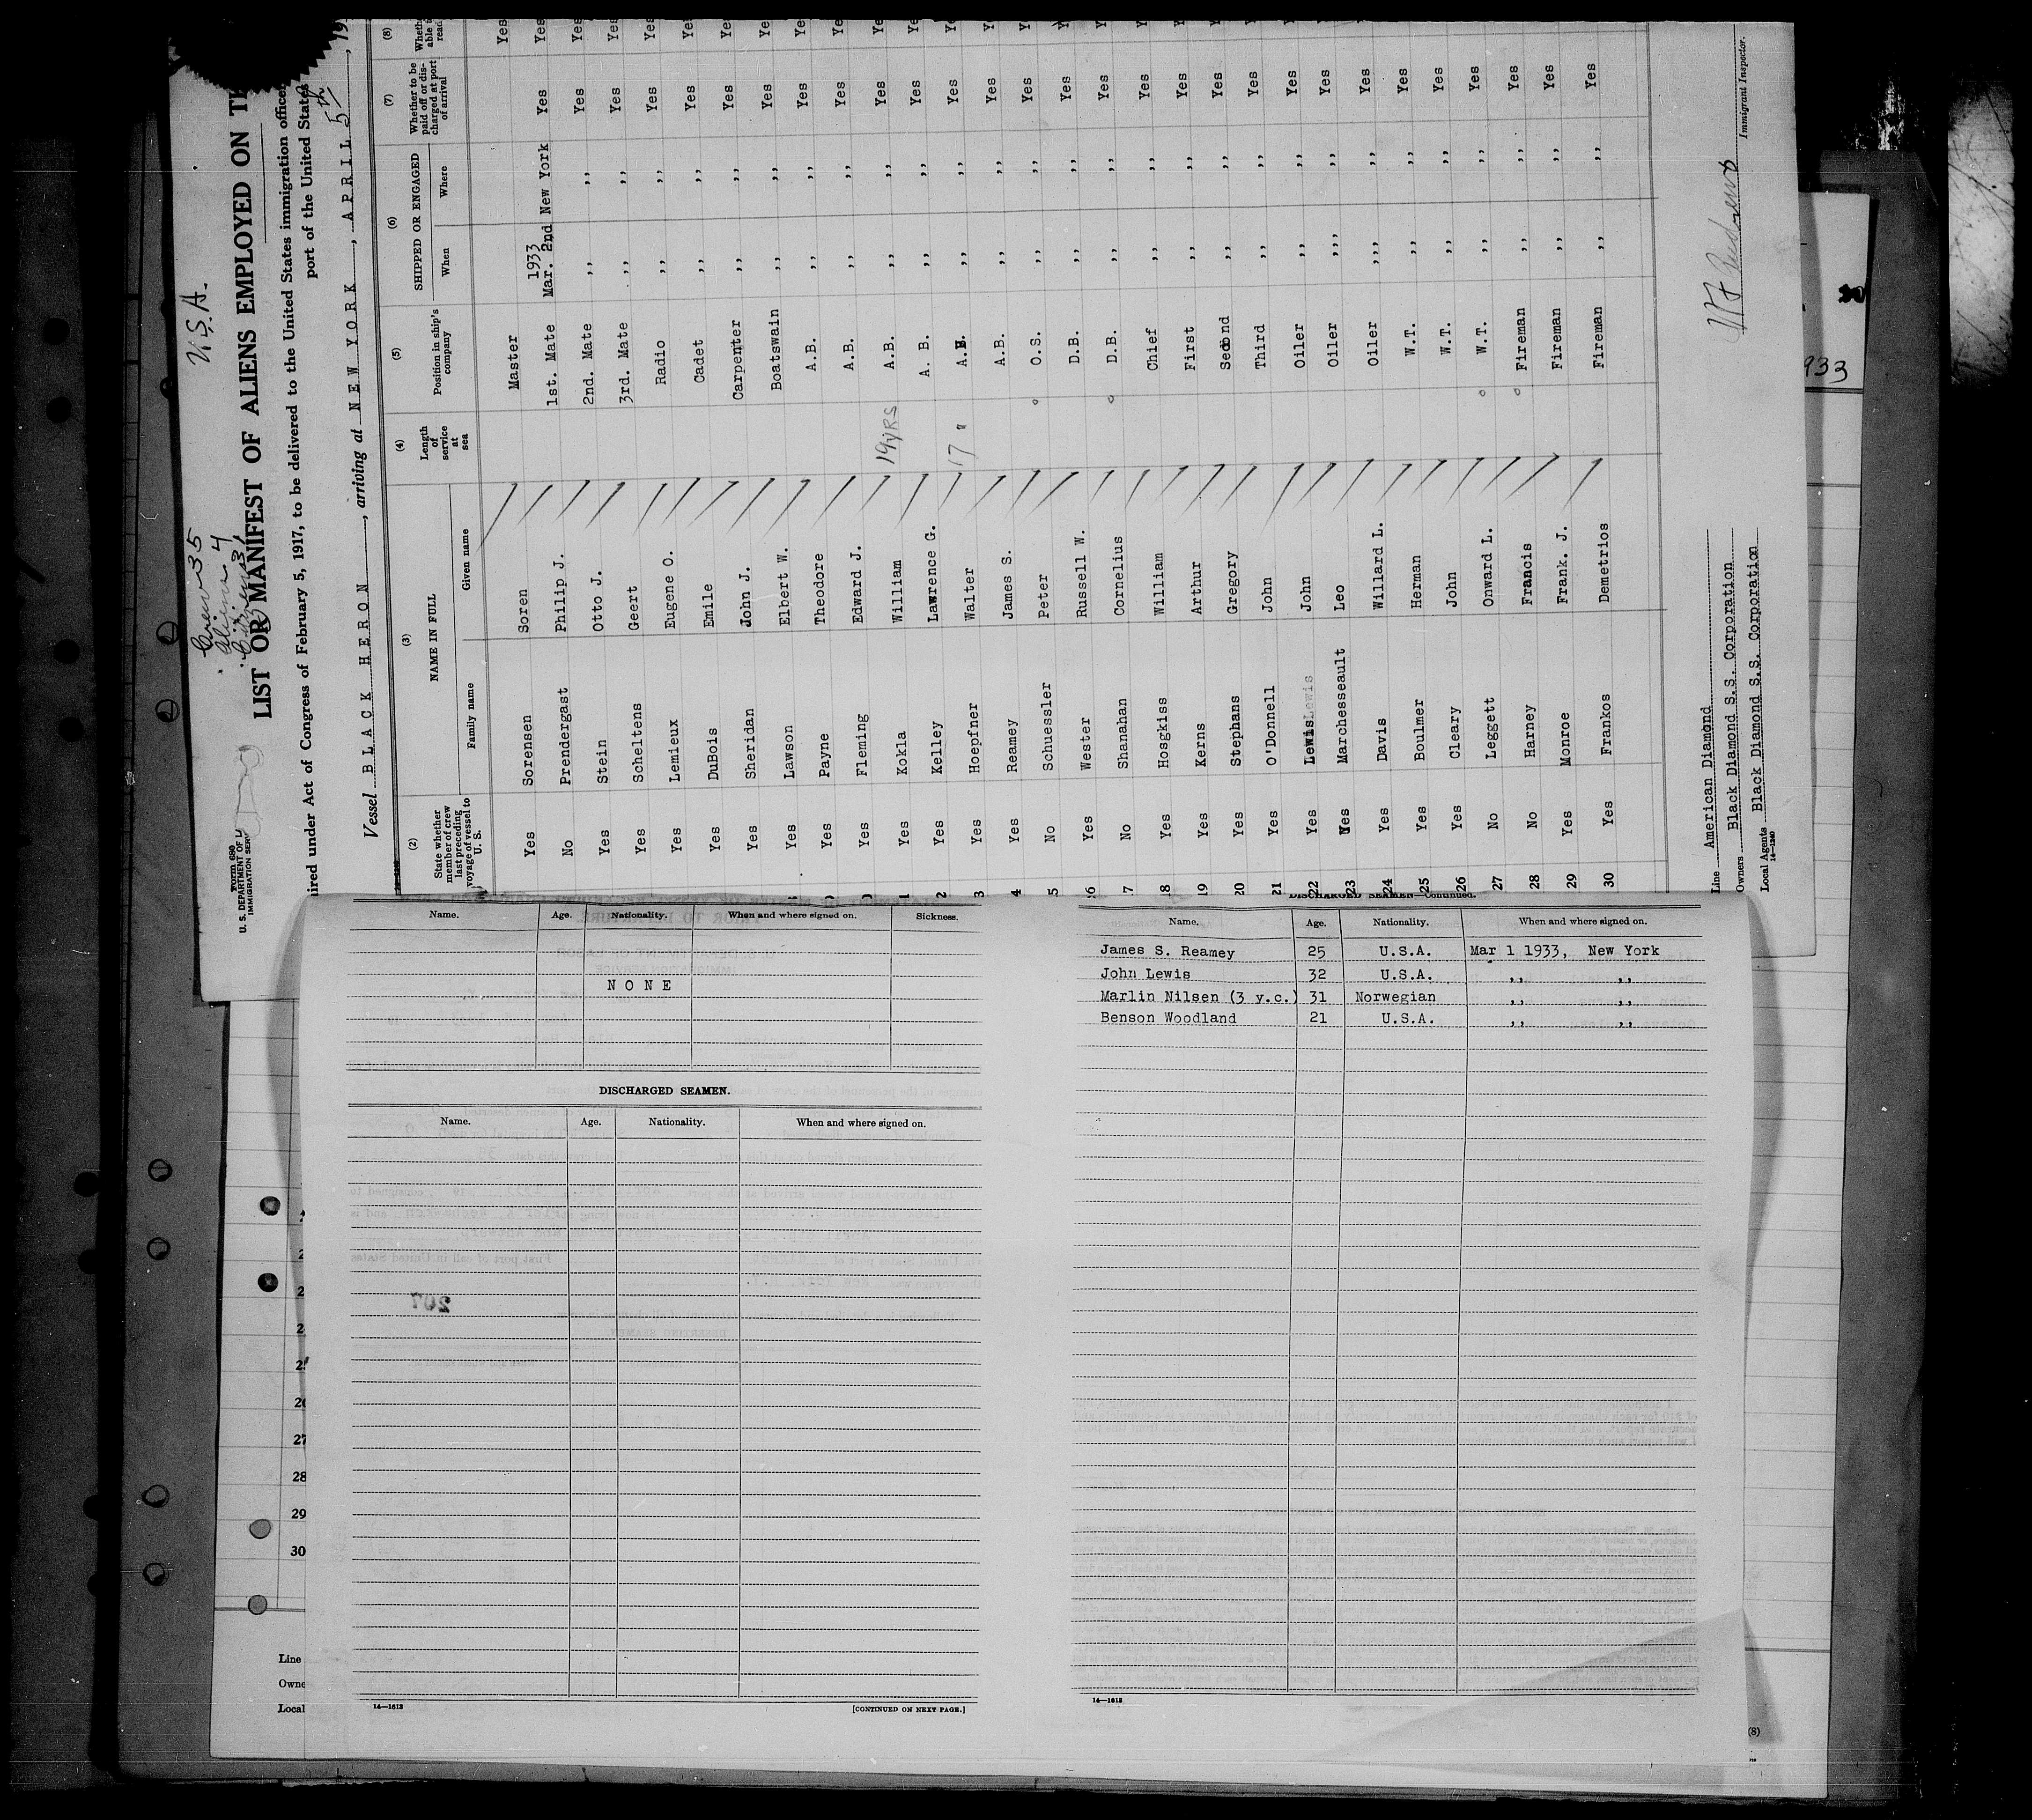 U.S.A.
Crew 35
Aliens 4
Citizens 31
Form 680
U. S. DEPARTMENT OF L
IMMIGRATION SERV
LIST OR MANIFEST OF ALIENS EMPLOYED ON TH
ired under Act of Congress of February 5, 1917, to be delivered to the United States immigration officer
port of the United States
Vessel BLACK HERON, arriving at NEW YORK, APRIL 5th, 19
(2) (3) (4) (5) (6) (7) (8)
State whether member of crew last preceding voyage of vessel to U. S.
NAME IN FULL
Family name Given name
Length of service at sea
Position in ship's company
SHIPPED OR ENGAGED
When Where
Whether to be paid off or discharged at port of arrival
Wheth able t read
Yes Sorensen Soren Master Yes
No Prendergast Philip J. 1st. Mate 1933 Mar. 2nd New York Yes Yes
Yes Stein Otto J. 2nd. Mate ,, ,, Yes Yes
Yes Scheltens Geert 3rd. Mate ,, ,, Yes Yes
Yes Lemieux Eugene O. Radio ,, ,, Yes Yes
Yes DuBois Emile Cadet ,, ,, Yes Yes
Yes Sheridan John J. Carpenter ,, ,, Yes Yes
Yes Lawson Elbert W. Boatswain ,, ,, Yes Yes
Yes Payne Theodore A.B. ,, ,, Yes Yes
Yes Fleming Edward J. A.B. ,, ,, Yes Ye
1 Yes Kokla William 19 yrs A.B. ,, ,, Yes Yes
2 Yes Kelley Lawrence G. A. B. ,, ,, Yes Ye
3 Yes Hoepfner Walter 17 " A.B. ,, ,, Yes Ye
4 Yes Reamey James S. A.B. ,, ,, Yes Ye
5 No Schuessler Peter O.S. ,, ,, Yes Ye
16 Yes Wester Russell W. D.B. ,, ,, Yes Y
17 No Shanahan Cornelius D.B. ,, ,, Yes Y
18 Yes Hosgkiss William Chief ,, ,, Yes Y
19 Yes Kerns Arthur First ,, ,, Yes Y
20 Yes Stephans Gregory Second ,, ,, Yes Y
21 Yes O'Donnell John Third ,, ,, Yes
22 Yes Lewis Lewis John Oiler ,, ,, Yes
23 Yes Marchesseault Leo Oiler ,,, ,, Yes
24 Yes Davis Willard L. Oiler ,,, ,, Yes
25 Yes Boulmer Herman W.T. ,, ,, Yes
26 Yes Cleary John W.T. ,, ,, Yes
27 No Leggett Onward L. W.T. ,, ,, Yes
28 No Harney Francis Fireman ,, ,, Yes
29 Yes Monroe Frank. J. Fireman ,, ,, Yes
30 Yes Frankos Demetrios Fireman ,, ,, Yes
Line American Diamond
Owners Black Diamond S.S. Corporation
Local Agents Black Diamond S.S. Corporation
14-1240
Immigrant Inspector.
933
Name. Age. Nationality. When and where signed on. Sickness.
NONE
DISCHARGED SEAMEN.
Name. Age. Nationality. When and where signed on.
14—1613
[CONTINUED ON NEXT PAGE.]
DISCHARGED SEAMEN—Continued.
Name. Age. Nationality. When and where signed on.
James S. Reamey 25 U.S.A. Mar 1 1933, New York
John Lewis 32 U.S.A. ,, ,,
Marlin Nilsen (3 y.c.) 31 Norwegian ,, ,,
Benson Woodland 21 U.S.A. ,, ,,
14—1613
207
2
2
2
2
26
27
28
29
30
Line
Owne
Local
(8)